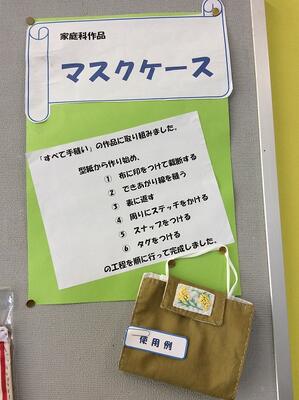 家庭科作品
マスクケース
「すべて手縫い」の作品に取り組みました。
型紙から作り始め、
① 布に印をつけて裁断する
② できあがり線を縫う
③ 表に返す
④ 周りにステッチをかける
⑤ スナップをつける
⑥ タグをつける
の工程を順に行って完成しました。
使用例